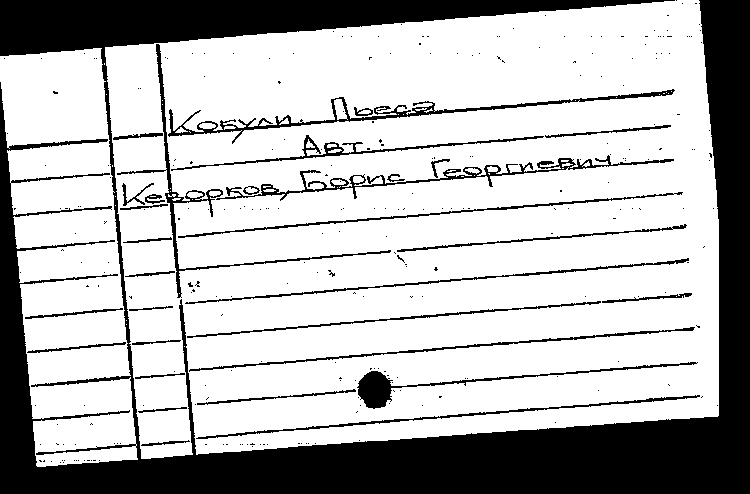 Кобули. Пьеса.
Авт.:
Кеворков, Борис Георгиевич